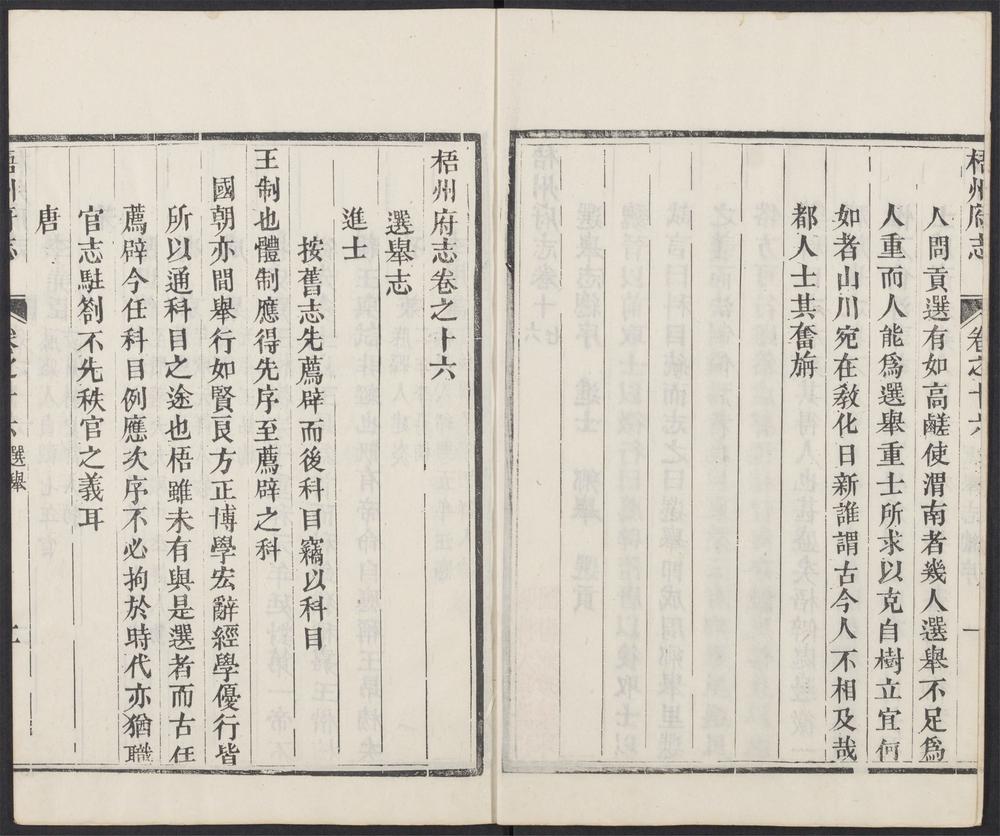 梧州府志
卷之十六
一
人問貢選有如高鹺使渭南者幾人選舉不足爲
人重而人能爲選舉重士所求以克自樹立宜何
如者山川宛在敎化日新誰謂古今人不相及哉
都人士其奮旃
梧州府志卷之十六
選舉志
進士
按舊志先薦辟而後科目竊以科目
王制也體制應得先序至薦辟之科
國朝亦間舉行如賢良方正博學宏辭經學優行皆
所以通科目之途也梧雖未有與是選者而古任
薦辟今任科目例應次序不必拘於時代亦猶職
官志駐劄不先秩官之義耳
唐
梧州府志
卷之十六 選舉